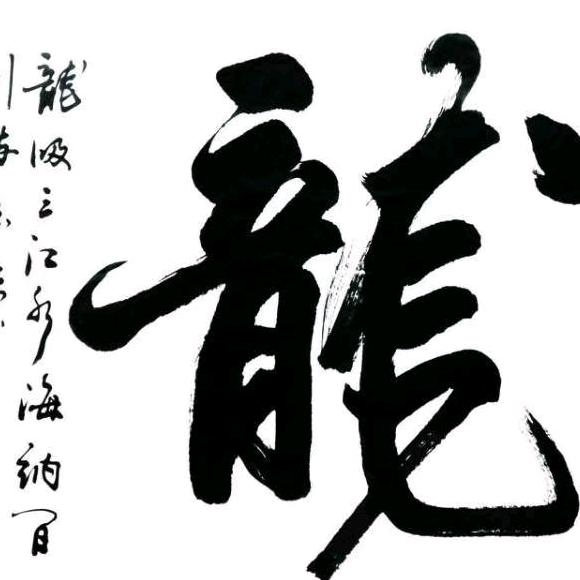 龍
龍吸三江水海納百